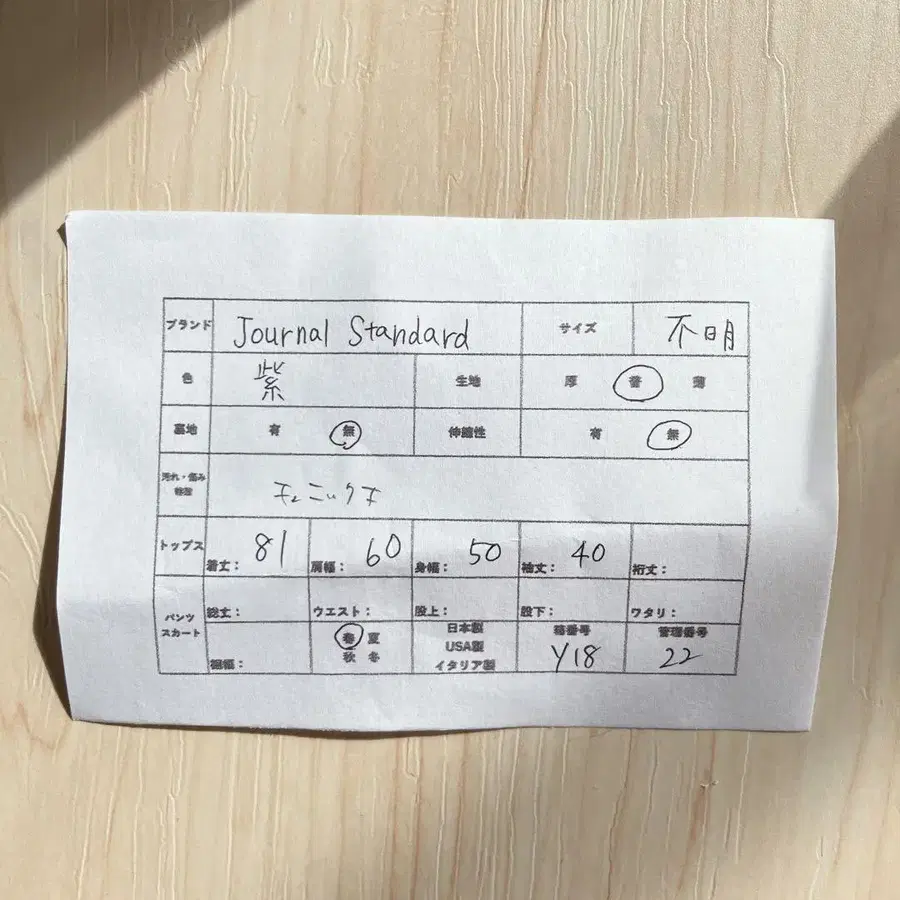 ブランド Journal Standard サイズ 不明
色 紫 生地 厚 普 薄
裏地 有 無 伸縮性 有 無
汚れ・傷み
トップス 着丈： 81 肩幅： 60 身幅： 50 袖丈： 40 裄丈：
パンツ スカート 総丈： ウエスト： 股上： 股下： ワタリ：
裾幅： 春 夏 日本製 箱番号 管理番号
秋 冬 USA製 Y18 22
イタリア製